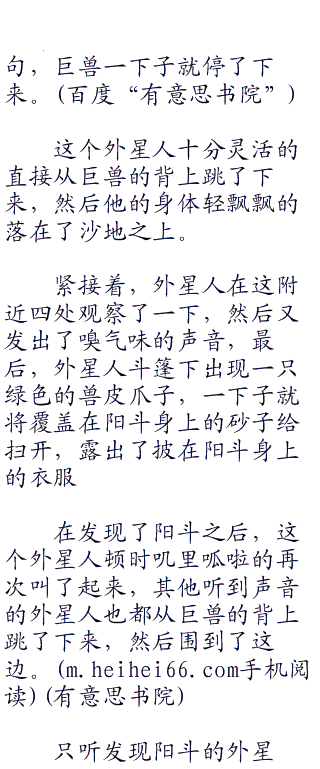 句，巨兽一下子就停了下
来。(百度“有意思书院”)
这个外星人十分灵活的
直接从巨兽的背上跳了下
来，然后他的身体轻飘飘的
落在了沙地之上。
紧接着，外星人在这附
近四处观察了一下，然后又
发出了嗅气味的声音，最
后，外星人斗篷下出现一只
绿色的兽皮爪子，一下子就
将覆盖在阳斗身上的砂子给
扫开，露出了披在阳斗身上
的衣服
在发现了阳斗之后，这
个外星人顿时叽里呱啦的再
次叫了起来，其他听到声音
的外星人也都从巨兽的背上
跳了下来，然后围到了这
边。(m.heihei66.com手机阅
读)(有意思书院)
只听发现阳斗的外星